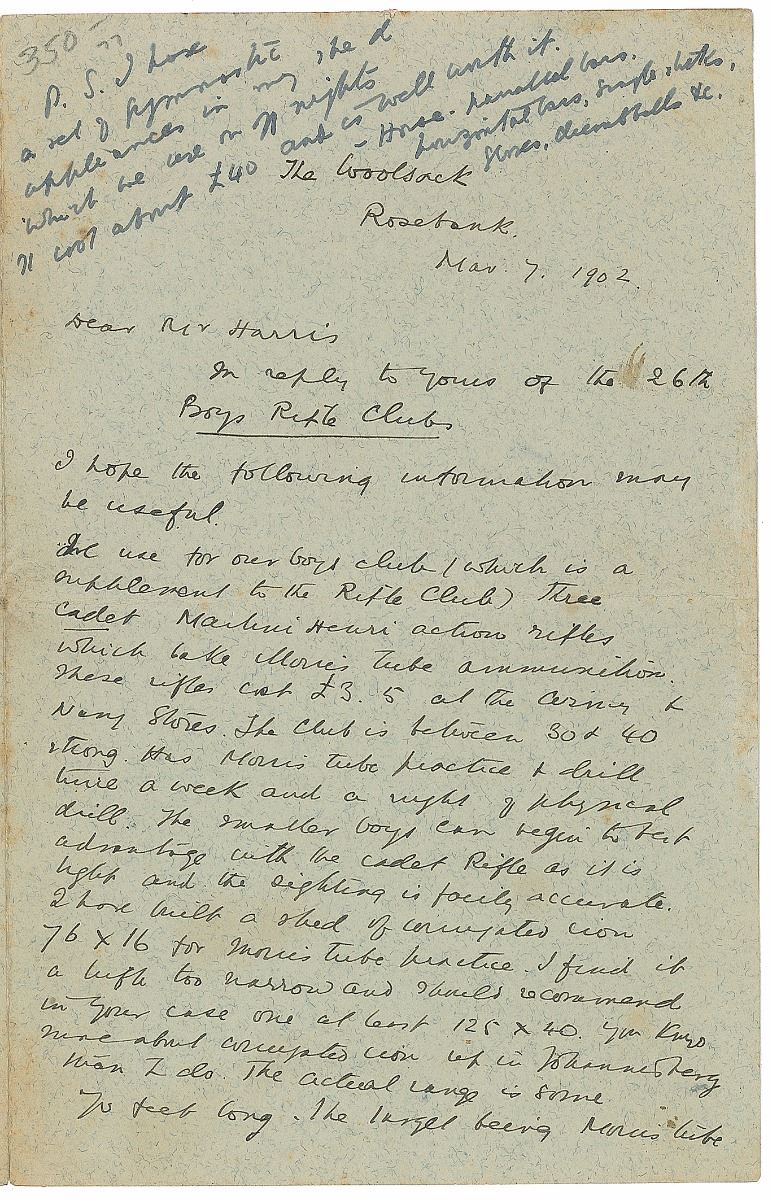 350-
P. S. I have
a set of gymnastic
appliances in my shed
which we use on nights
It cost about £40 and is well worth it.
- Horse. parallel bars.
horizontal bars, single sticks,
gloves, dumbbells &c.
The Woolsack
Rosebank.
Mar. 7. 1902.
Dear Mr Harris
In reply to yours of the 26th
Boys Rifle Clubs
I hope the following information may
be useful.
We use for our boys club (which is a
supplement to the Rifle Club) Three
cadet Martini Henri action rifles
which take Morris tube ammunition.
These rifles cost £3. 5 at the Army &
Navy Stores. The Club is between 30 & 40
strong. Has Morris tube practice & drill
twice a week and a night of physical
drill. The smaller boys can begin to best
advantage with the cadet Rifle as it is
light and the sighting is fairly accurate.
I have built a shed of corrugated iron
76 x 16 for Morris tube practice. I find it
a trifle too narrow and should recommend
in your case one at least 125 x 40. You know
more about corrugated iron up in Johannesberg
than I do. The actual range is some
70 feet long. The target being Morris tube